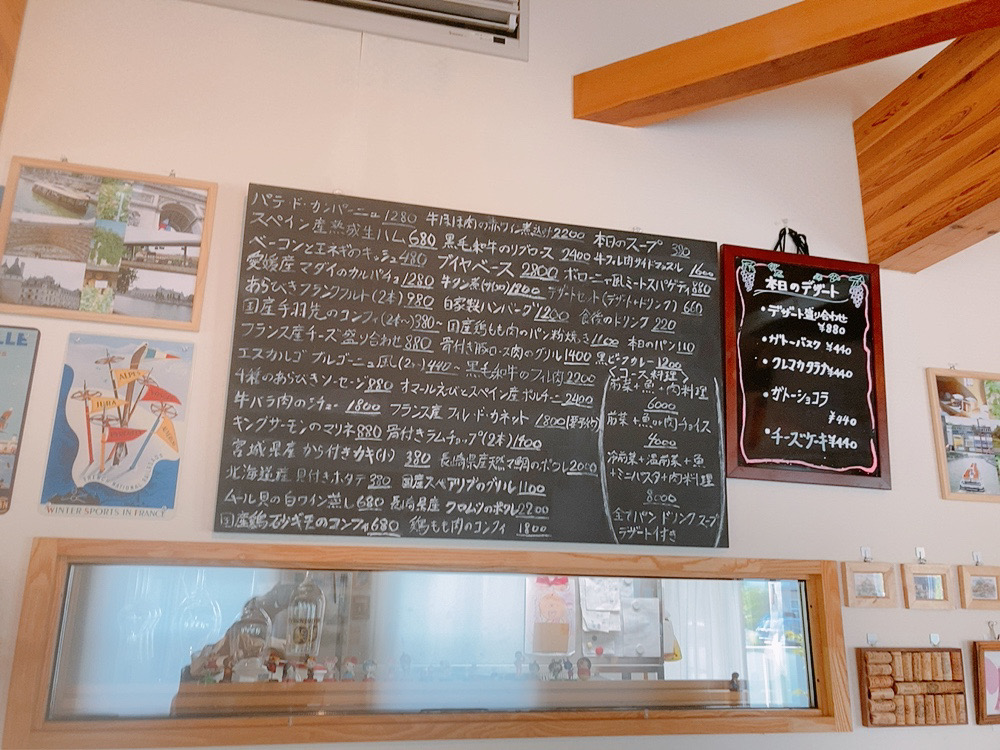 パテ・ド・カンパーニュ 1280
スペイン産熟成生ハム 680
ベーコンと玉ネギのキッシュ 480
愛媛産マダイのカルパッチョ 1280
あらびきフランクフルト(2本) 980
国産手羽先のコンフィ(2本〜) 380~
フランス産チーズ盛り合わせ 880
エスカルゴ ブルゴーニュ風(2コ〜) 440~
4種のあらびきソーセージ 880
牛バラ肉のシチュー 1800
キングサーモンのマリネ 880
宮城県産 から付きカキ(小) 380
北海道産 貝付きホタテ 380
ムール貝の白ワイン蒸し 680
国産鶏砂ギモのコンフィ 680
牛ほほ肉の赤ワイン煮込み 2200
黒毛和牛のリブロース 2400
ブイヤベース 2800
牛タン 1800
自家製ハンバーグ 1200
国産鶏もも肉のパン粉焼き 1100
骨付き豚ロース肉のグリル 1400
黒毛和牛のフィレ肉 2200
オマールえびとスペイン産ポルチーニ 2400
フランス産 フィレ・ド・カネット 1800
骨付きラムチャップ(2本) 1900
長崎県産天然マ鯛のポワレ 2000
国産スペアリブのグリル 1100
長崎県産 クロムツのポワレ 2200
鶏もも肉のコンフィ 1800
本日のスープ 380
牛フィレ肉サイドマッスル 1600
ボロニア風ミートスパゲティ 880
デザートセット(デザート+ドリンク) 660
食後のドリンク 220
本日のパン 110
黒ビーフカレー 1200
<コース料理>
前菜+魚・肉料理
6000
前菜+魚or肉チョイス
4000
冷前菜+温前菜+魚
+ミニパスタ+肉料理
8000
全てパン ドリンク スープ
デザート付き
本日のデザート
・デザート盛り合わせ
¥880
・ガトーバスク ¥440
・クレマカタラナ ¥440
・ガトーショコラ
¥440
・チーズケーキ ¥440
LLE
ALPES
JURA
WINTER SPORTS IN FRANCE